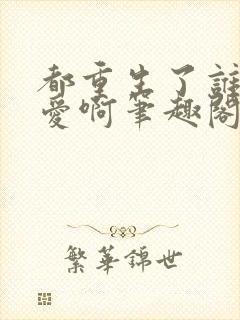 都重生了誰
愛啊筆趣閣
繁華錦世